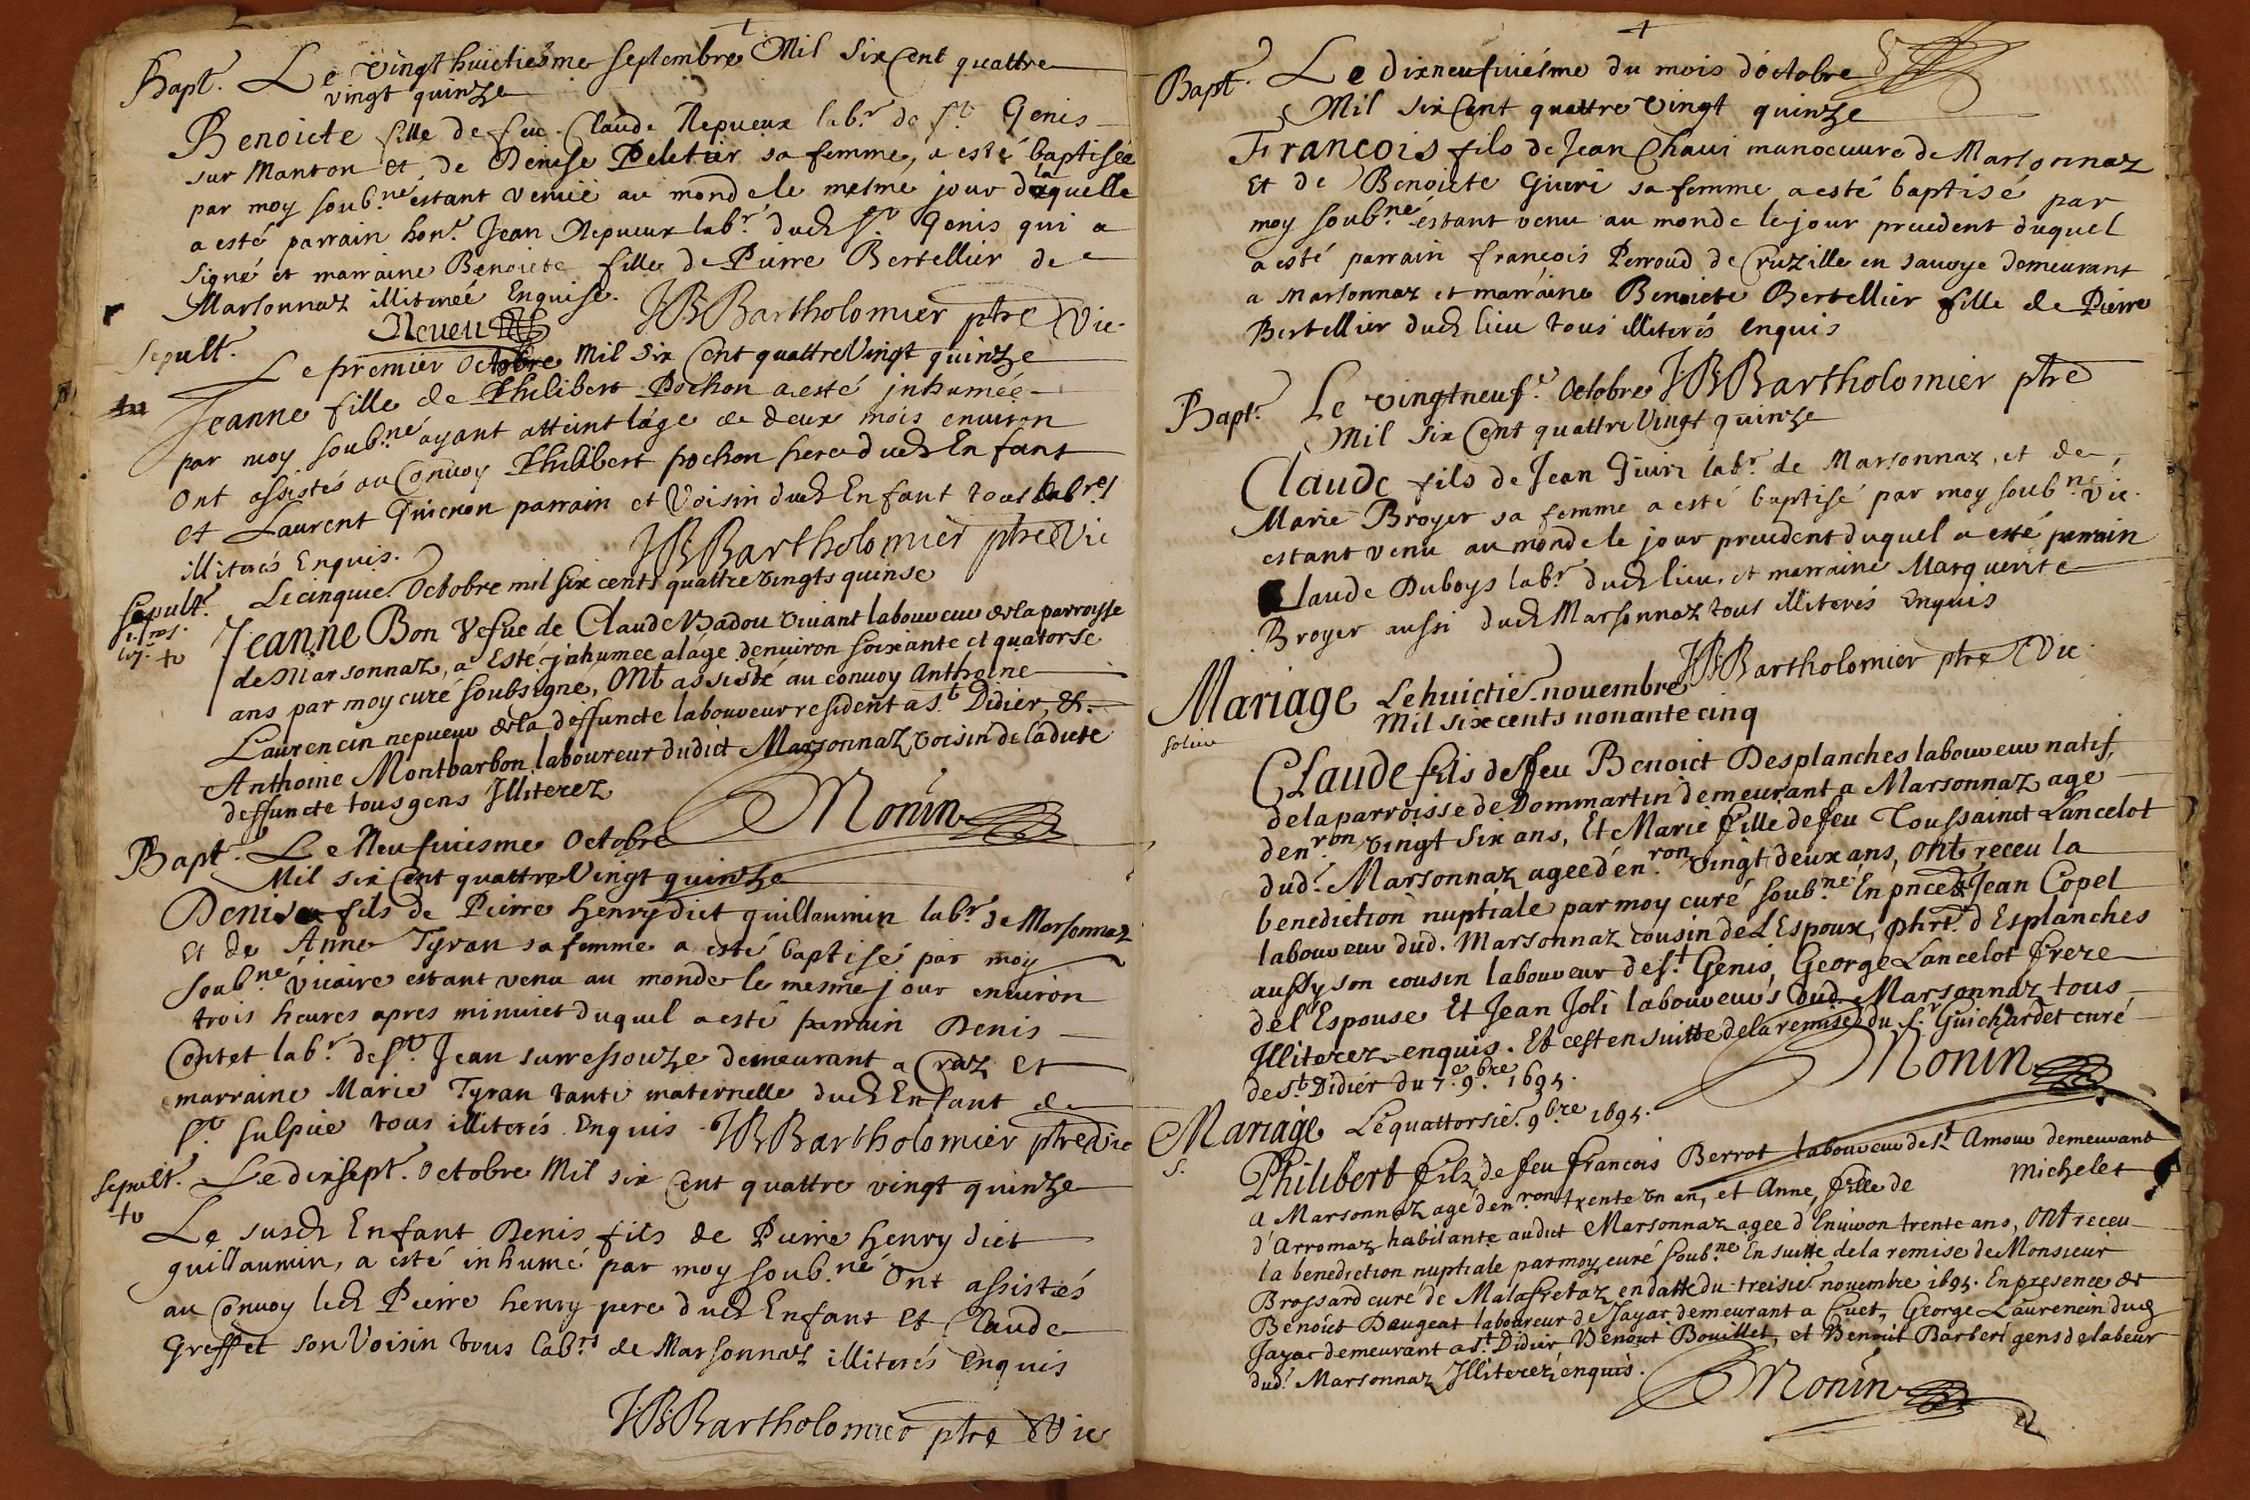 Bapt. Le vingt huictiesme septembre Mil six Cent quattre
vingt quinze
Benoicte fille de feu Claude Nepueux lab.r de s.t Genis
sur Manton et de Denise Peletier sa femme, a esté baptisée
par moy soub.né estant venue au monde le mesme jour de laquelle
a esté parrain hon.r Jean Nepueux lab.r dud s.t Genis qui a
signé et marraine Benoicte fille de Pierre Bertellier de
Marsonnaz illiterée Enquise. JB Bartholomier ptre Vic.
Neveu
Sepult. Le premier Octobre Mil Six Cent quattre Vingt quinze
Jeanne fille de Philibert Pochon a esté jnhumée
par moy soub.né ayant atteint lâge de deux mois environ
Ont assistés au Convoy Philibert pochon pere dud Enfant
et Laurent Guicnon parrain et Voisin dud Enfant tous lab.rs
illiterés Enquis. JB Bartholomier ptre Vic
Sepult. Le cinquie. Octobre mil six cents quattre vingts quinse
Jeanne Bon Vefue de Claude Badou vivant laboureur de la parroisse
de Marsonnaz, a Esté jnhumee a lâge d'environ soixante et quatorse
ans par moy curé soubsigne, Ont assisté au convoy Anthoine
Laurencin nepueu de la deffuncte laboureur resident a s.t Didier, &.
Anthoine Montbarbon laboureur dudict Marsonnaz voisin de ladicte
deffuncte tous gens Jlliterez
Monin
Bapt. Le Neufuiesme Octobre
Mil six Cent quattre Vingt quinze
Denis fils de Pierre henry dict guillaumin lab.r de Marsonnaz
Et de Anne Tyran sa femme a esté baptisé par moy
Soub.né Vicaire estant venu au monde le mesme jour environ
trois heures apres minuict duquel a esté parrain Denis
Contet lab.r de s.t Jean sur ressouze demeurant a Craz et
marraine Marie Tyran tante maternelle dud Enfant de
s.t Sulpice tous illiterés Enquis JB Bartholomier ptre Vic
Sepult. Le dixsept. Octobre Mil six Cent quattre vingt quinze
Le susd Enfant Denis fils de Pierre henry dict
guillaumin, a esté inhumé par moy soub.né Ont assistés
au Convoy led Pierre henry pere dud Enfant et Claude
Greffet son Voisin tous lab.rs de Marsonnaz illiterés Enquis
JB Bartholomier ptre Vic
Bapt. Le dixneufuiésme du mois d'octobre
Mil six Cent quattre Vingt quinze
Francois fils de Jean Chavi manoeuure de Marsonnaz
Et de Benoicte Givri sa femme a esté baptisé par
moy soub.né estant venu au monde le jour precedent duquel
a esté parrain françois Perroud de Cruzille en savoye demeurant
a Marsonnaz et marraine Benoicte Bertellier fille de Pierre
Bertellier dud lieu tous illiterés Enquis
JB Bartholomier ptre
Bapt. Le vingtneuf.e Octobre
Mil six Cent quattre Vingt quinze
Claude fils de Jean Givri lab.r de Marsonnaz, et de
Marie Broyer sa femme a esté baptisé par moy soub.né Vic.
estant venu au monde le jour precedent duquel a esté parrain
Claude Duboys lab.r dud lieu, et marraine Marguerite
Broyer aussi dud Marsonnaz tous illiterés Enquis
JB Bartholomier ptre Vic
Mariage Le huictie. novembre
Mil six cents nonante cinq
Claude fils de feu Benoict Desplanches laboureur natif
de la parroisse de Dommartin demeurant a Marsonnaz age
den.ron vingt six ans, Et Marie fille de feu Toussainct Lancelot
dud. Marsonnaz agee d'en.ron vingt deux ans, Ont receu la
benediction nuptiale par moy curé soub.né En pnce de Jean Copel
laboureur dud. Marsonnaz cousin de L'Espoux, phrt. d'Esplanches
aussy son cousin laboureur de s.t Genis, George Lancelot frere
de l'Espouse Et Jean Joli laboureurs dud. Marsonnaz tous
Jlliterez enquis. Et c'est en suitte de la remise du s.r Guichardet curé
de s.t Didier du 7.e 9.bre 1695.
Monin
Mariage Le quattorsie. 9.bre 1695.
S.
Philibert fils de feu francois Berrot laboureur de s.t Amour demeurant
a Marsonnaz age den.ron trente vn an, et Anne, fille de Michelet
d'Arromaz habitante audict Marsonnaz agee d'Environ trente ans, Ont receu
la benediction nuptiale par moy curé soub.né En suitte de la remise de Monsieur
Brossard curé de Malafretaz en datte du treisie. novembre 1695. En presence de
Benoict Daugeat laboureur de Jayac demeurant a Cuet, George Laurencin dud
Jayac demeurant a s.t Didier, Benoict Bouillet, et Benoit Barberi gens de labeur
dud. Marsonnaz Jlliterez enquis.
Monin